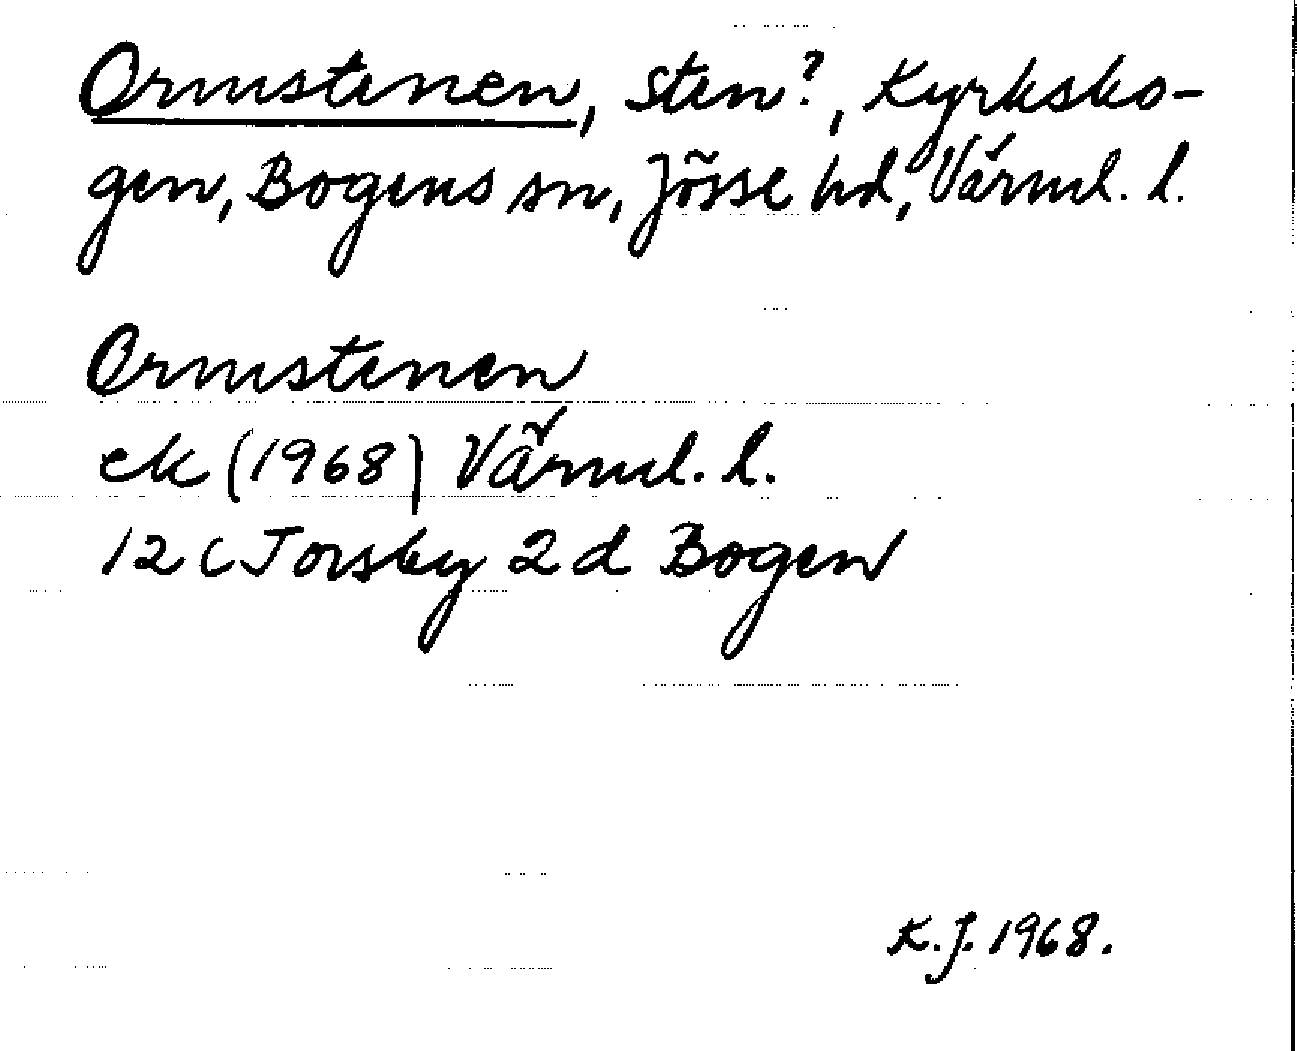 Ormstenen, sten?, Kyrksko-
gen, Bogens sn, Jösse hd, Värml. l.
Ormstenen
ek (1968) Värml. l.
12 C Torsby 2 d Bogen
K.J. 1968.